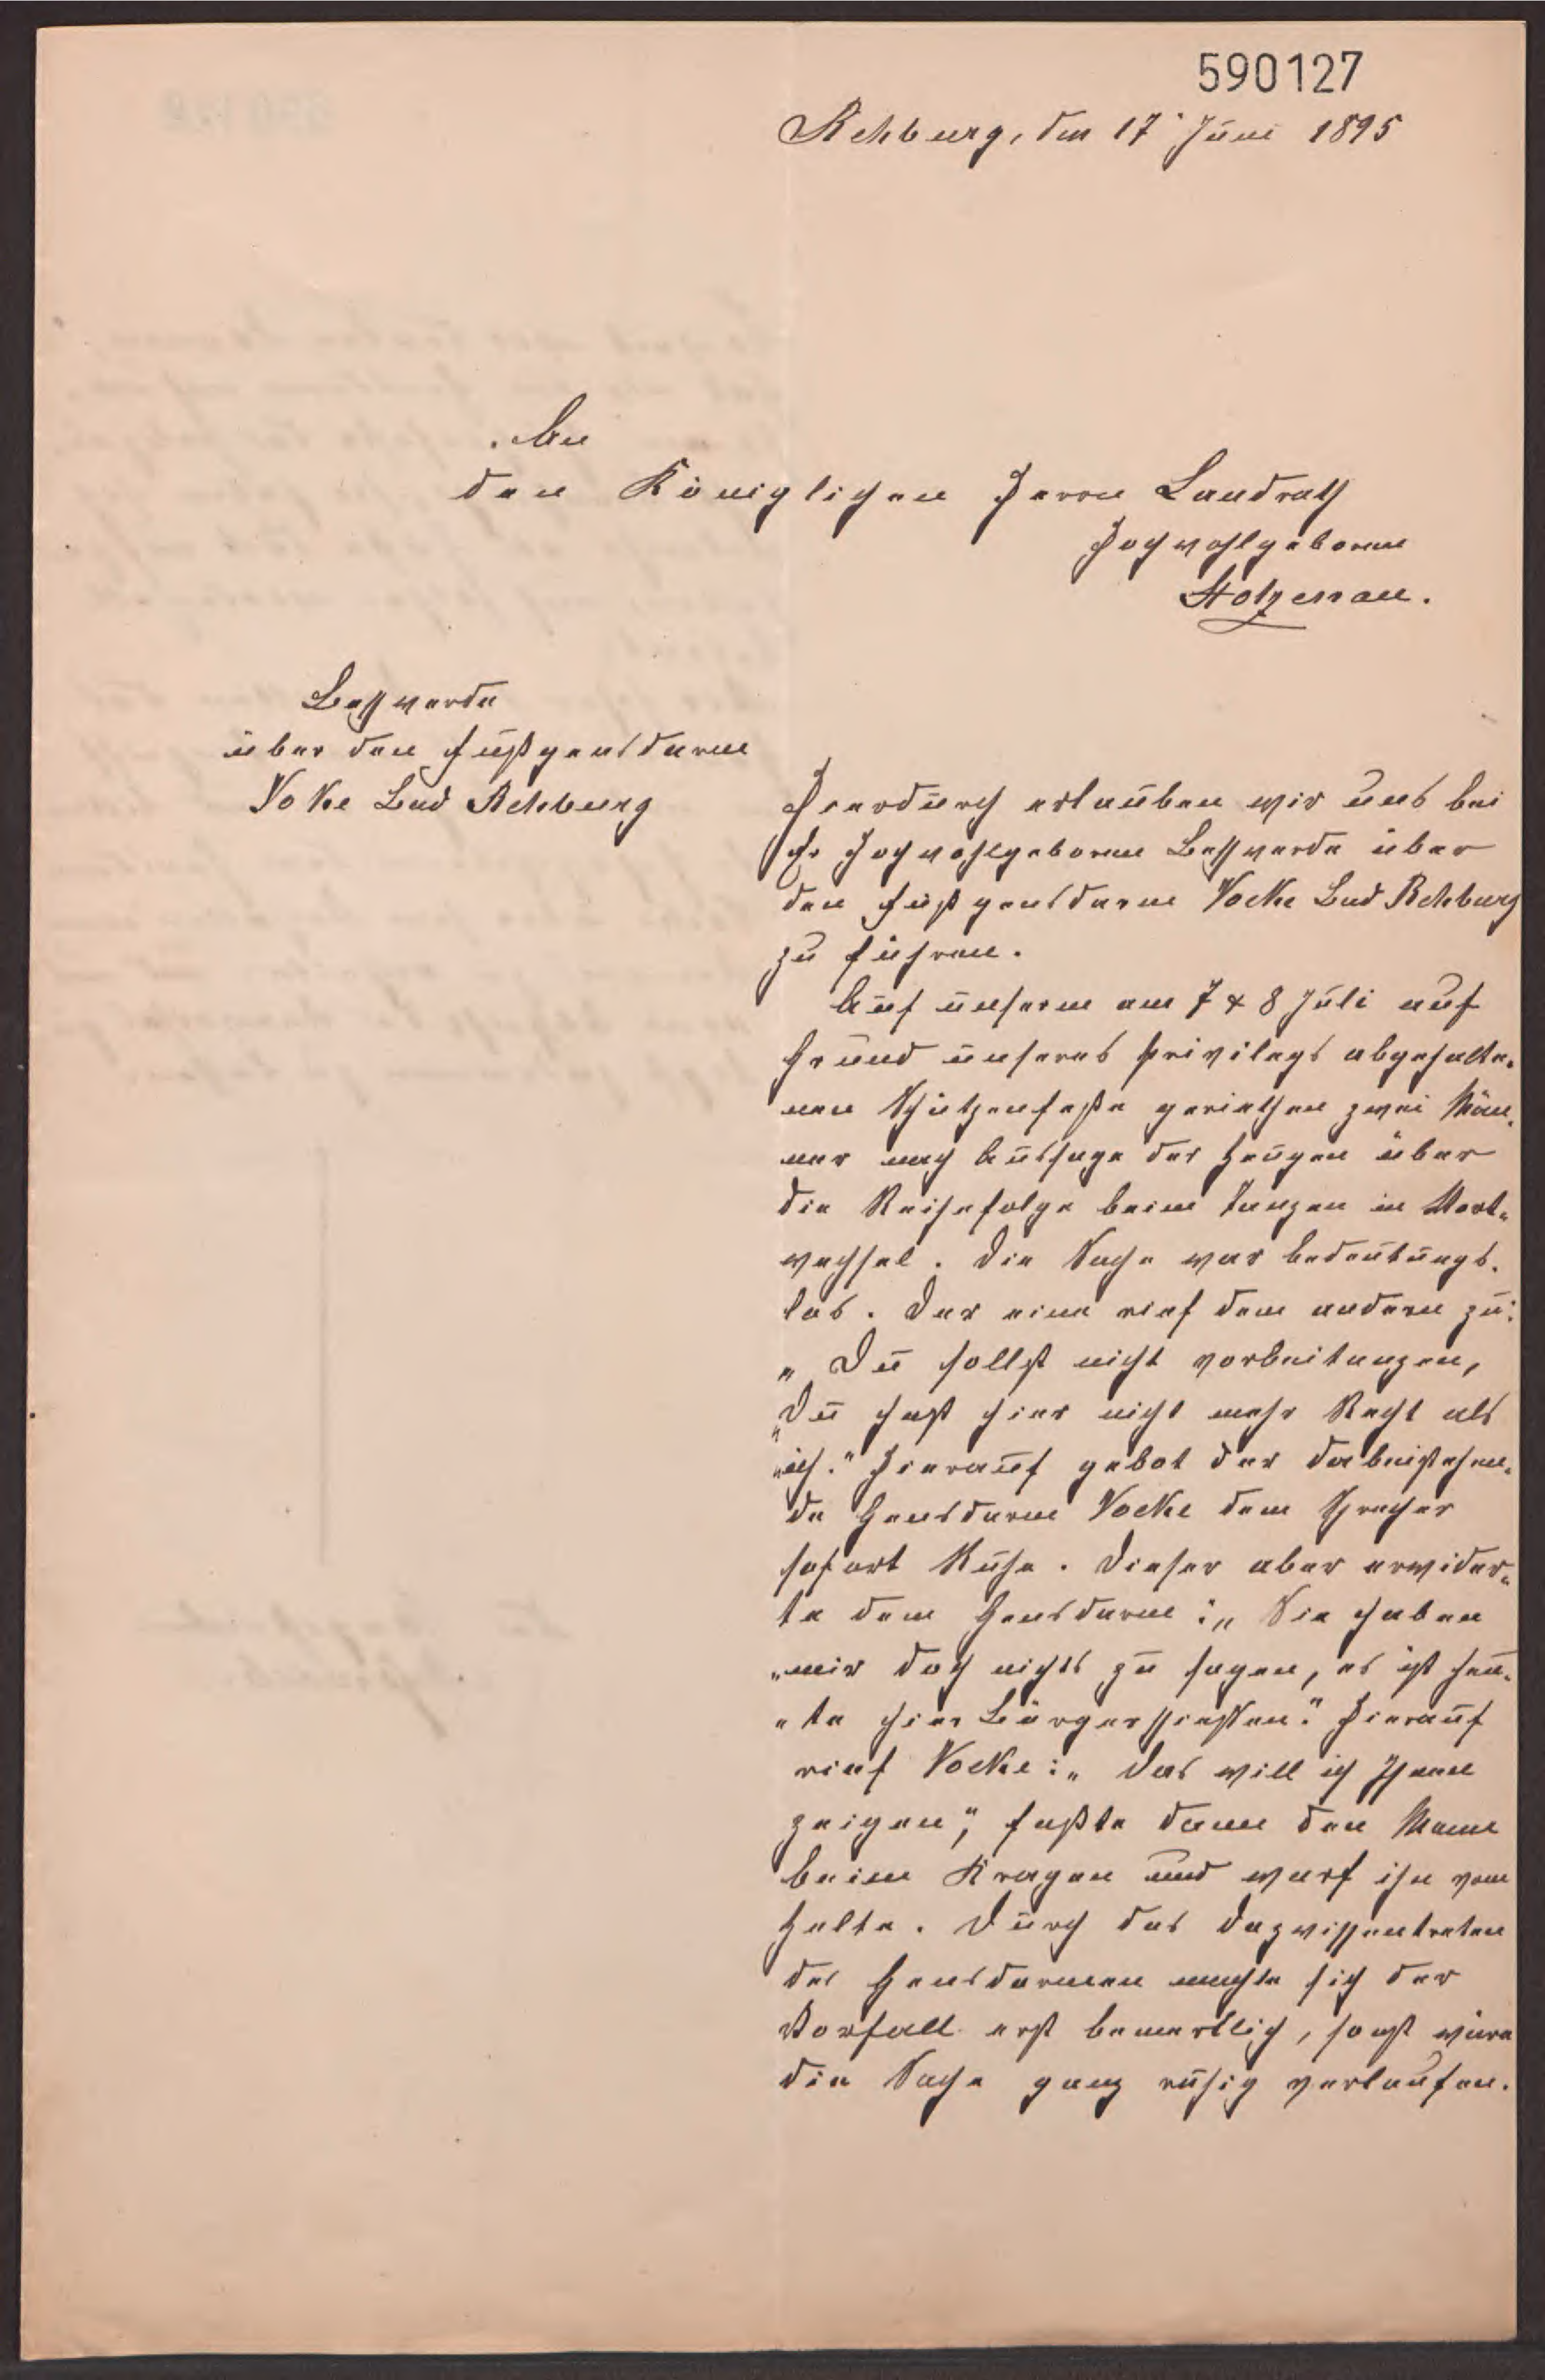 590127
Rehburg, den 17' Juni 1895
An
den Königlichen Herrn Landrath
Hochwohlgeboren
Stolzenau.
Beschwerde
über den Fußgensdarm
Voke Bad Rehburg
Hierdurch erlauben wir uns bei
Ew Hochwohlgeboren Beschwerde über
den Fußgensdarm Vocke Bad Rehburg
zu führen.
Auf unserm am 7 & 8 Juli auf
Grund unseres Privilegs abgehalte-
nen Schützenfeste geriethen zwei Män-
ner nach Aussage der Zeugen über
die Reihefolge beim Tanzen in Wort-
wechsel. Die Sache war bedeutungs-
los. Der eine rief dem andern zu:
„Du sollst nicht vorbeitanzen,
„Du hast hier nicht mehr Recht als
„ich." Hierauf gebot der dabeistehen-
de Gensdarm Vocke dem Sprecher
sofort Ruhe. Dieser aber erwider-
te dem Gensdarm: „Sie haben
„mir doch nichts zu sagen, es ist heu-
„te hier Bürgerschießen." Hierauf
rief Vocke: „Das will ich Ihnen
zeigen", faßte dann den Mann
beim Kragen und warf ihn vom
Zelte. Durch das Dazwischentreten
des Gensdarmen machte sich der
Vorfall erst bemerklich, sonst wäre
die Sache ganz ruhig verlaufen.